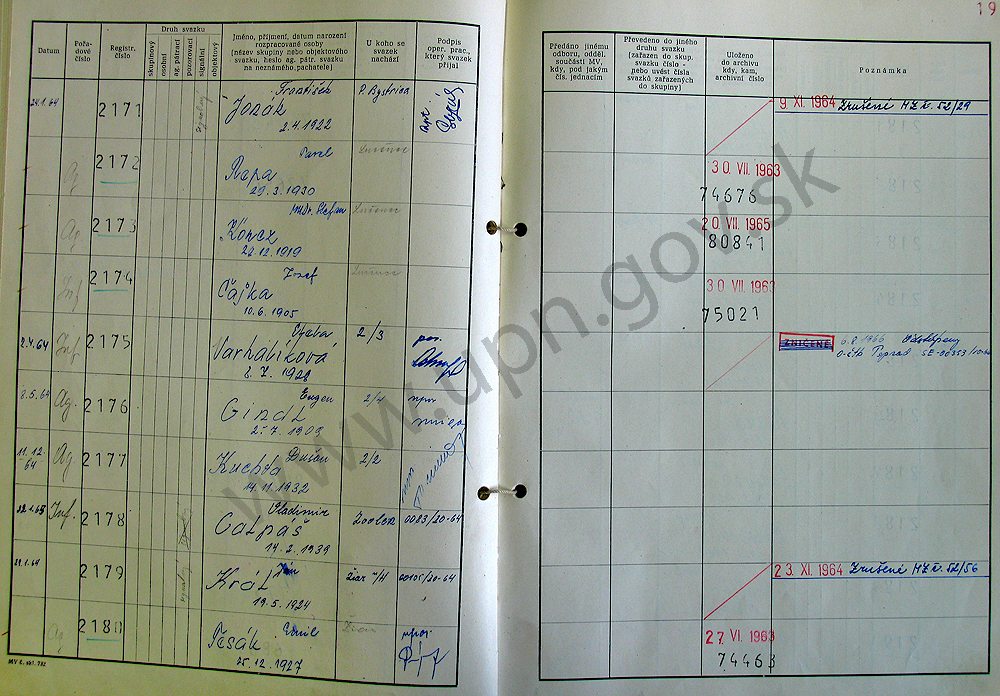 19
Datum
Pořa-
dové
číslo
Registr.
číslo
Druh svazku
skupinový
osobní
ag. pátrací
pozorovací
signální
objektový
Jméno, příjmení, datum narození
rozpracované osoby
(název skupiny nebo objektového
svazku, heslo ag. pátr. svazku
na neznámého pachatele)
U koho se
svazek
nachází
Podpis
oper. prac.,
který svazek
přijal
Předáno jinému
odboru, odděl.
součásti MV,
kdy, pod jakým
čís. jednacím
Převedeno do jiného
druhu svazku
(zařazen do skup.
svazku číslo -
nebo uvést čísla
svazků zařazených
do skupiny)
Uloženo
do archivu
kdy, kam,
archivní číslo
Poznámka
24.1.64 2171 František P. Bystrica
Jozák
2.4.1922
9. XI. 1964 Zrušené MZ č. 52/29
2172 Pavel Lučenec
Repa
29.3.1930
30 VII. 1963
74676
Ag 2173 MUDr. Štefan Lučenec
Koncz
1919
20 VII. 1965
80841
Inf 2174 Jozef Lučenec
Čajka
10.6.1905
30 VII. 1963
75021
2.4.64 Inf 2175 2/3
Varhaliková
8.7.1928
ZNIČENÉ 6.8.1966
Poprad
8.5.64 Ag. 2176 Eugen 2/4 npor
Gindl
2.7.1909
11.12.
64 Ag 2177 Dušan 2/2
Kuchta
14.11.1932
Inf. 2178 Vladimír Zvolen 0083/20-64
Catpáš
14.2.1939
29.1.64 2179 Ján Žiar n/H 00105/20-64
Král
19.5.1924
23. XI. 1964 Zrušené MZ č. 52/56
Ag 2180 Emil Žiar npor.
Pesák
25.12.1927
27 VI. 1963
74463
MV č. skl. 732
www.upn.gov.sk